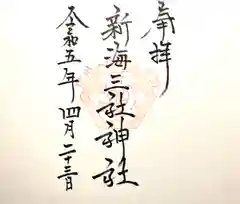 奉拝
新海三社神社
令和五年四月二十三日